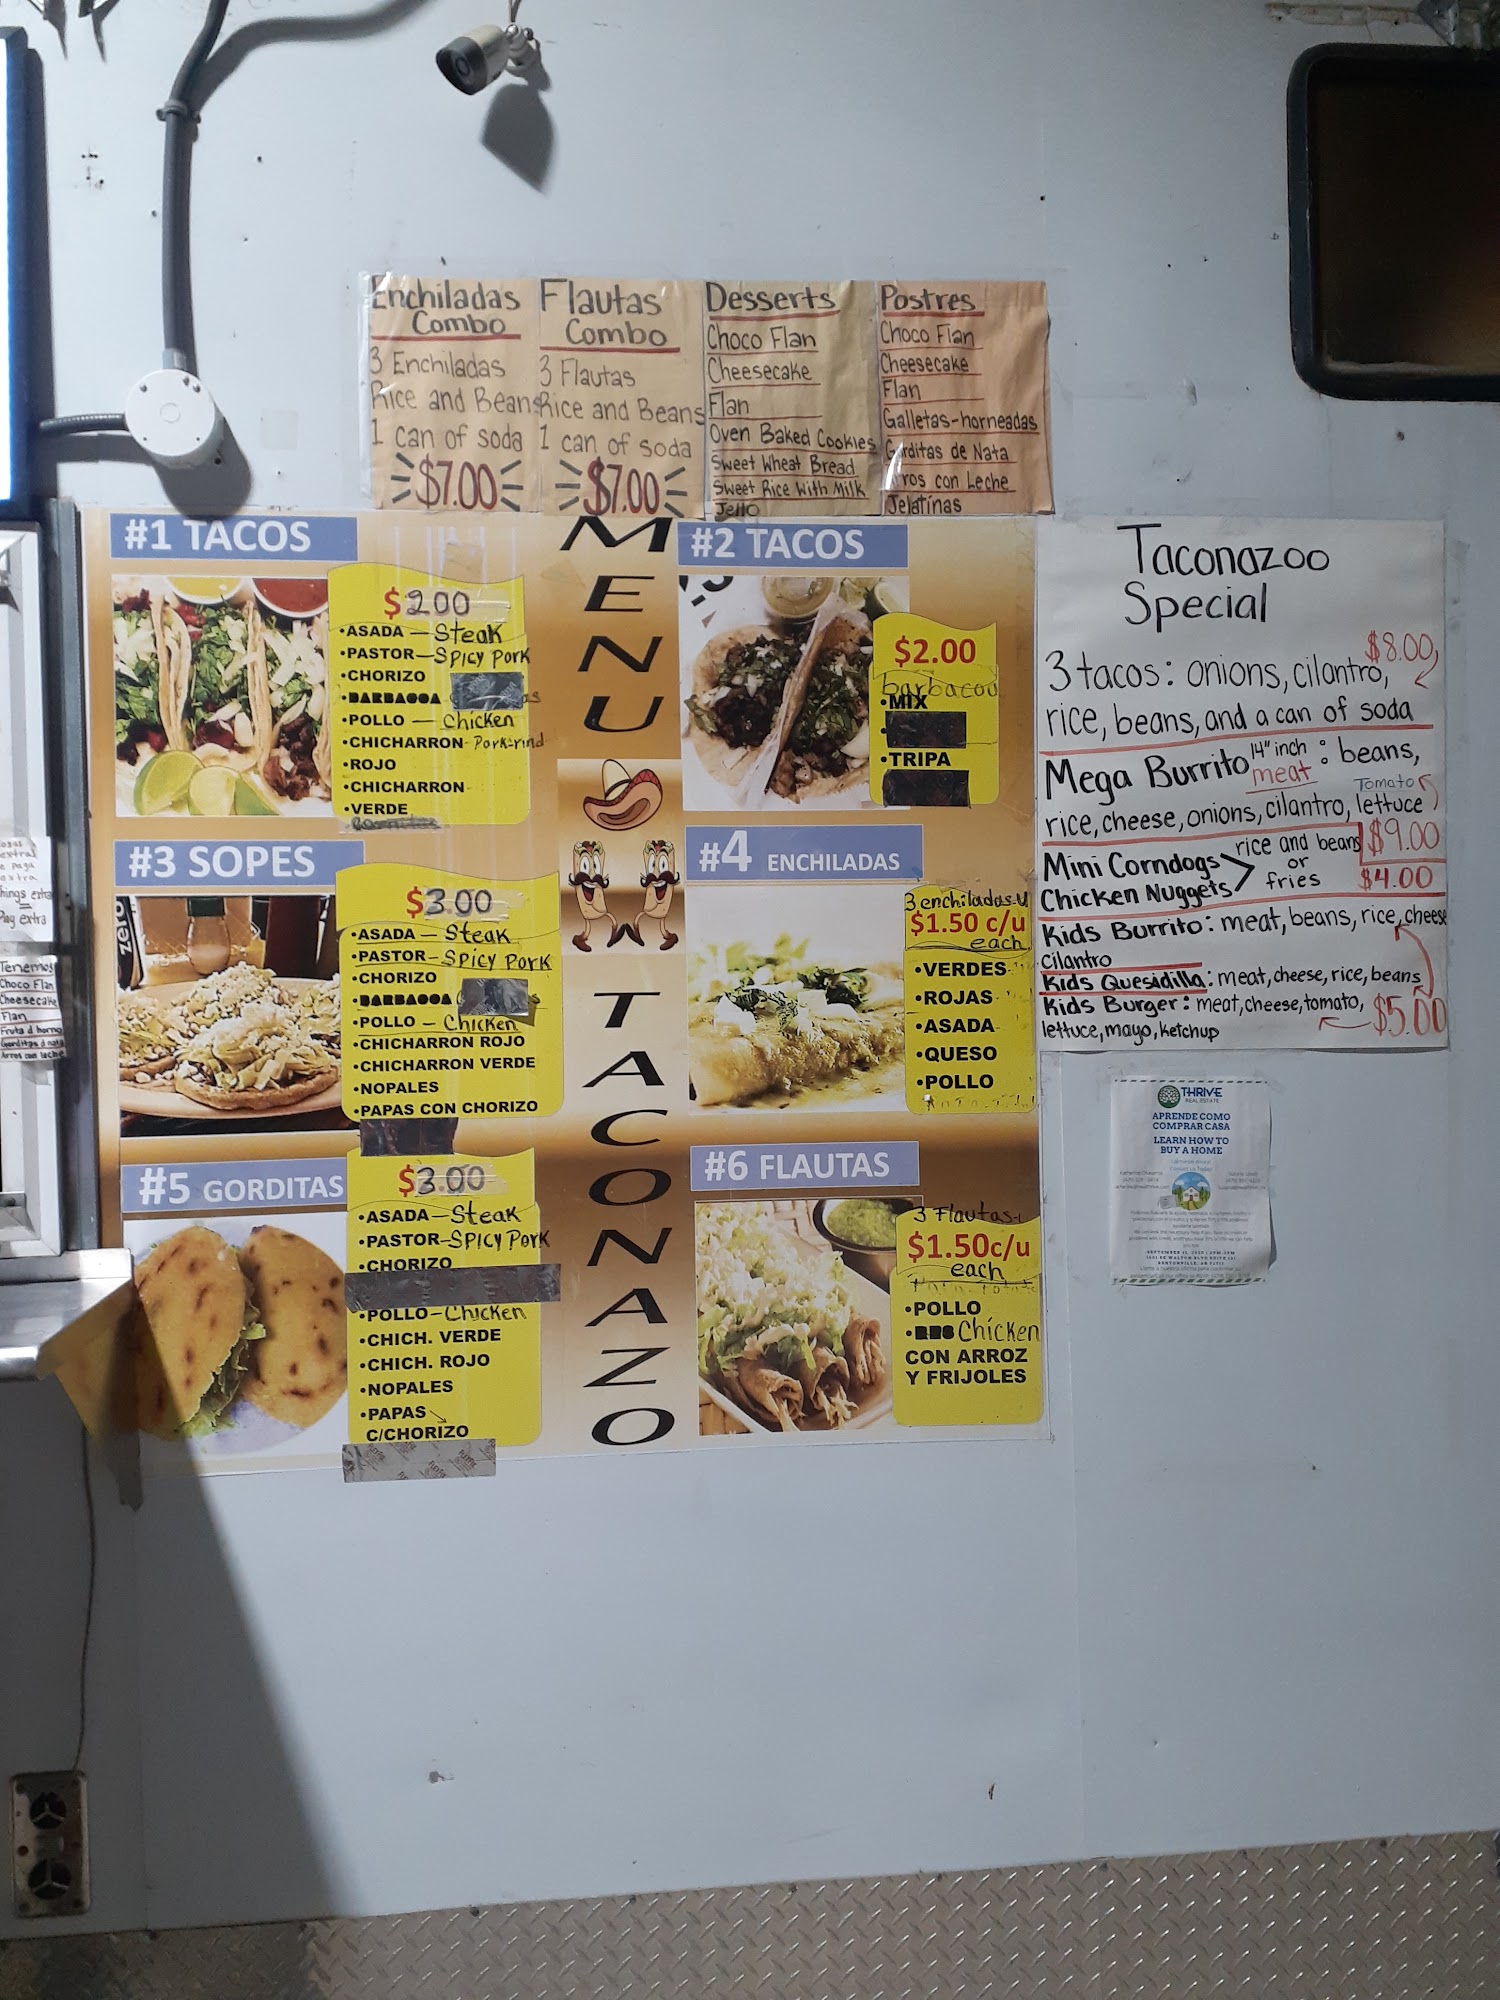 Enchiladas
Combo
3 Enchiladas
Rice and Beans
1 can of soda
$7.00
Flautas
Combo
3 Flautas
Rice and Beans
1 can of soda
$7.00
Desserts
Choco Flan
Cheesecake
Flan
Oven Baked Cookies
Sweet Wheat Bread
Sweet Rice With Milk
Jello
Postres
Choco Flan
Cheesecake
Flan
Galletas-horneadas
Gorditas de Nata
Arros con Leche
Jelatinas
MENU TACONAZO
#1 TACOS
$2.00
•ASADA — Steak
•PASTOR — Spicy Pork
•CHORIZO
•BARBACOA
•POLLO — Chicken
•CHICHARRON- Pork-rind
•ROJO
•CHICHARRON
•VERDE
#2 TACOS
$2.00
barbacoa
•MIX
•TRIPA
#3 SOPES
$3.00
•ASADA — Steak
•PASTOR — Spicy Pork
•CHORIZO
•BARBACOA
•POLLO — Chicken
•CHICHARRON ROJO
•CHICHARRON VERDE
•NOPALES
•PAPAS CON CHORIZO
#4 ENCHILADAS
3 enchiladas
$1.50 c/u
each
•VERDES
•ROJAS
•ASADA
•QUESO
•POLLO
#5 GORDITAS
$3.00
•ASADA — Steak
•PASTOR — Spicy Pork
•CHORIZO
•POLLO — Chicken
•CHICH. VERDE
•CHICH. ROJO
•NOPALES
•PAPAS
C/CHORIZO
#6 FLAUTAS
3 Flautas
$1.50c/u
each
•POLLO
Chicken
CON ARROZ
Y FRIJOLES
Taconazoo
Special
$8.00
3 tacos: onions, cilantro,
rice, beans, and a can of soda
Mega Burrito 14" inch meat : beans,
Tomato
rice, cheese, onions, cilantro, lettuce
$9.00
Mini Corndogs
Chicken Nuggets
rice and beans
or
fries
$4.00
Kids Burrito: meat, beans, rice, cheese
cilantro
Kids Quesidilla: meat, cheese, rice, beans
Kids Burger: meat, cheese, tomato,
lettuce, mayo, ketchup
$5.00
THRIVE
REAL ESTATE
APRENDE COMO
COMPRAR CASA
LEARN HOW TO
BUY A HOME
extra
paga
extra
things extra
=
Pay extra
Tenemos
Choco Flan
Cheesecake
Flan
Fruta d horno
Gorditas d nata
Arros con leche
zero